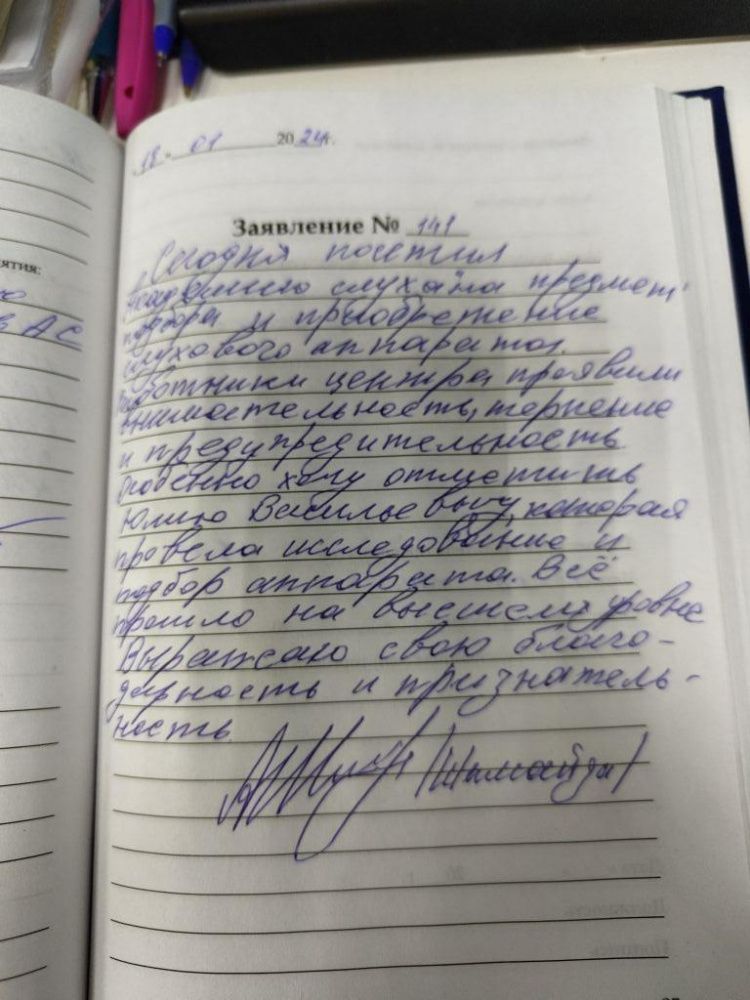 18 " 01 2024г.
Заявление № 141
Сегодня посетил
Академию слуха на предмет
подбора и приобретение
слухового аппарата.
Работники центра проявили
внимательность, терпение
и предупредительность.
Особенно хочу отметить
Юлию Васильевну, которая
провела исследование и
подбор аппарата. Всё
прошло на высшем уровне
Выражаю свою благо-
дарность и признатель-
ность.
ятия:
в АС